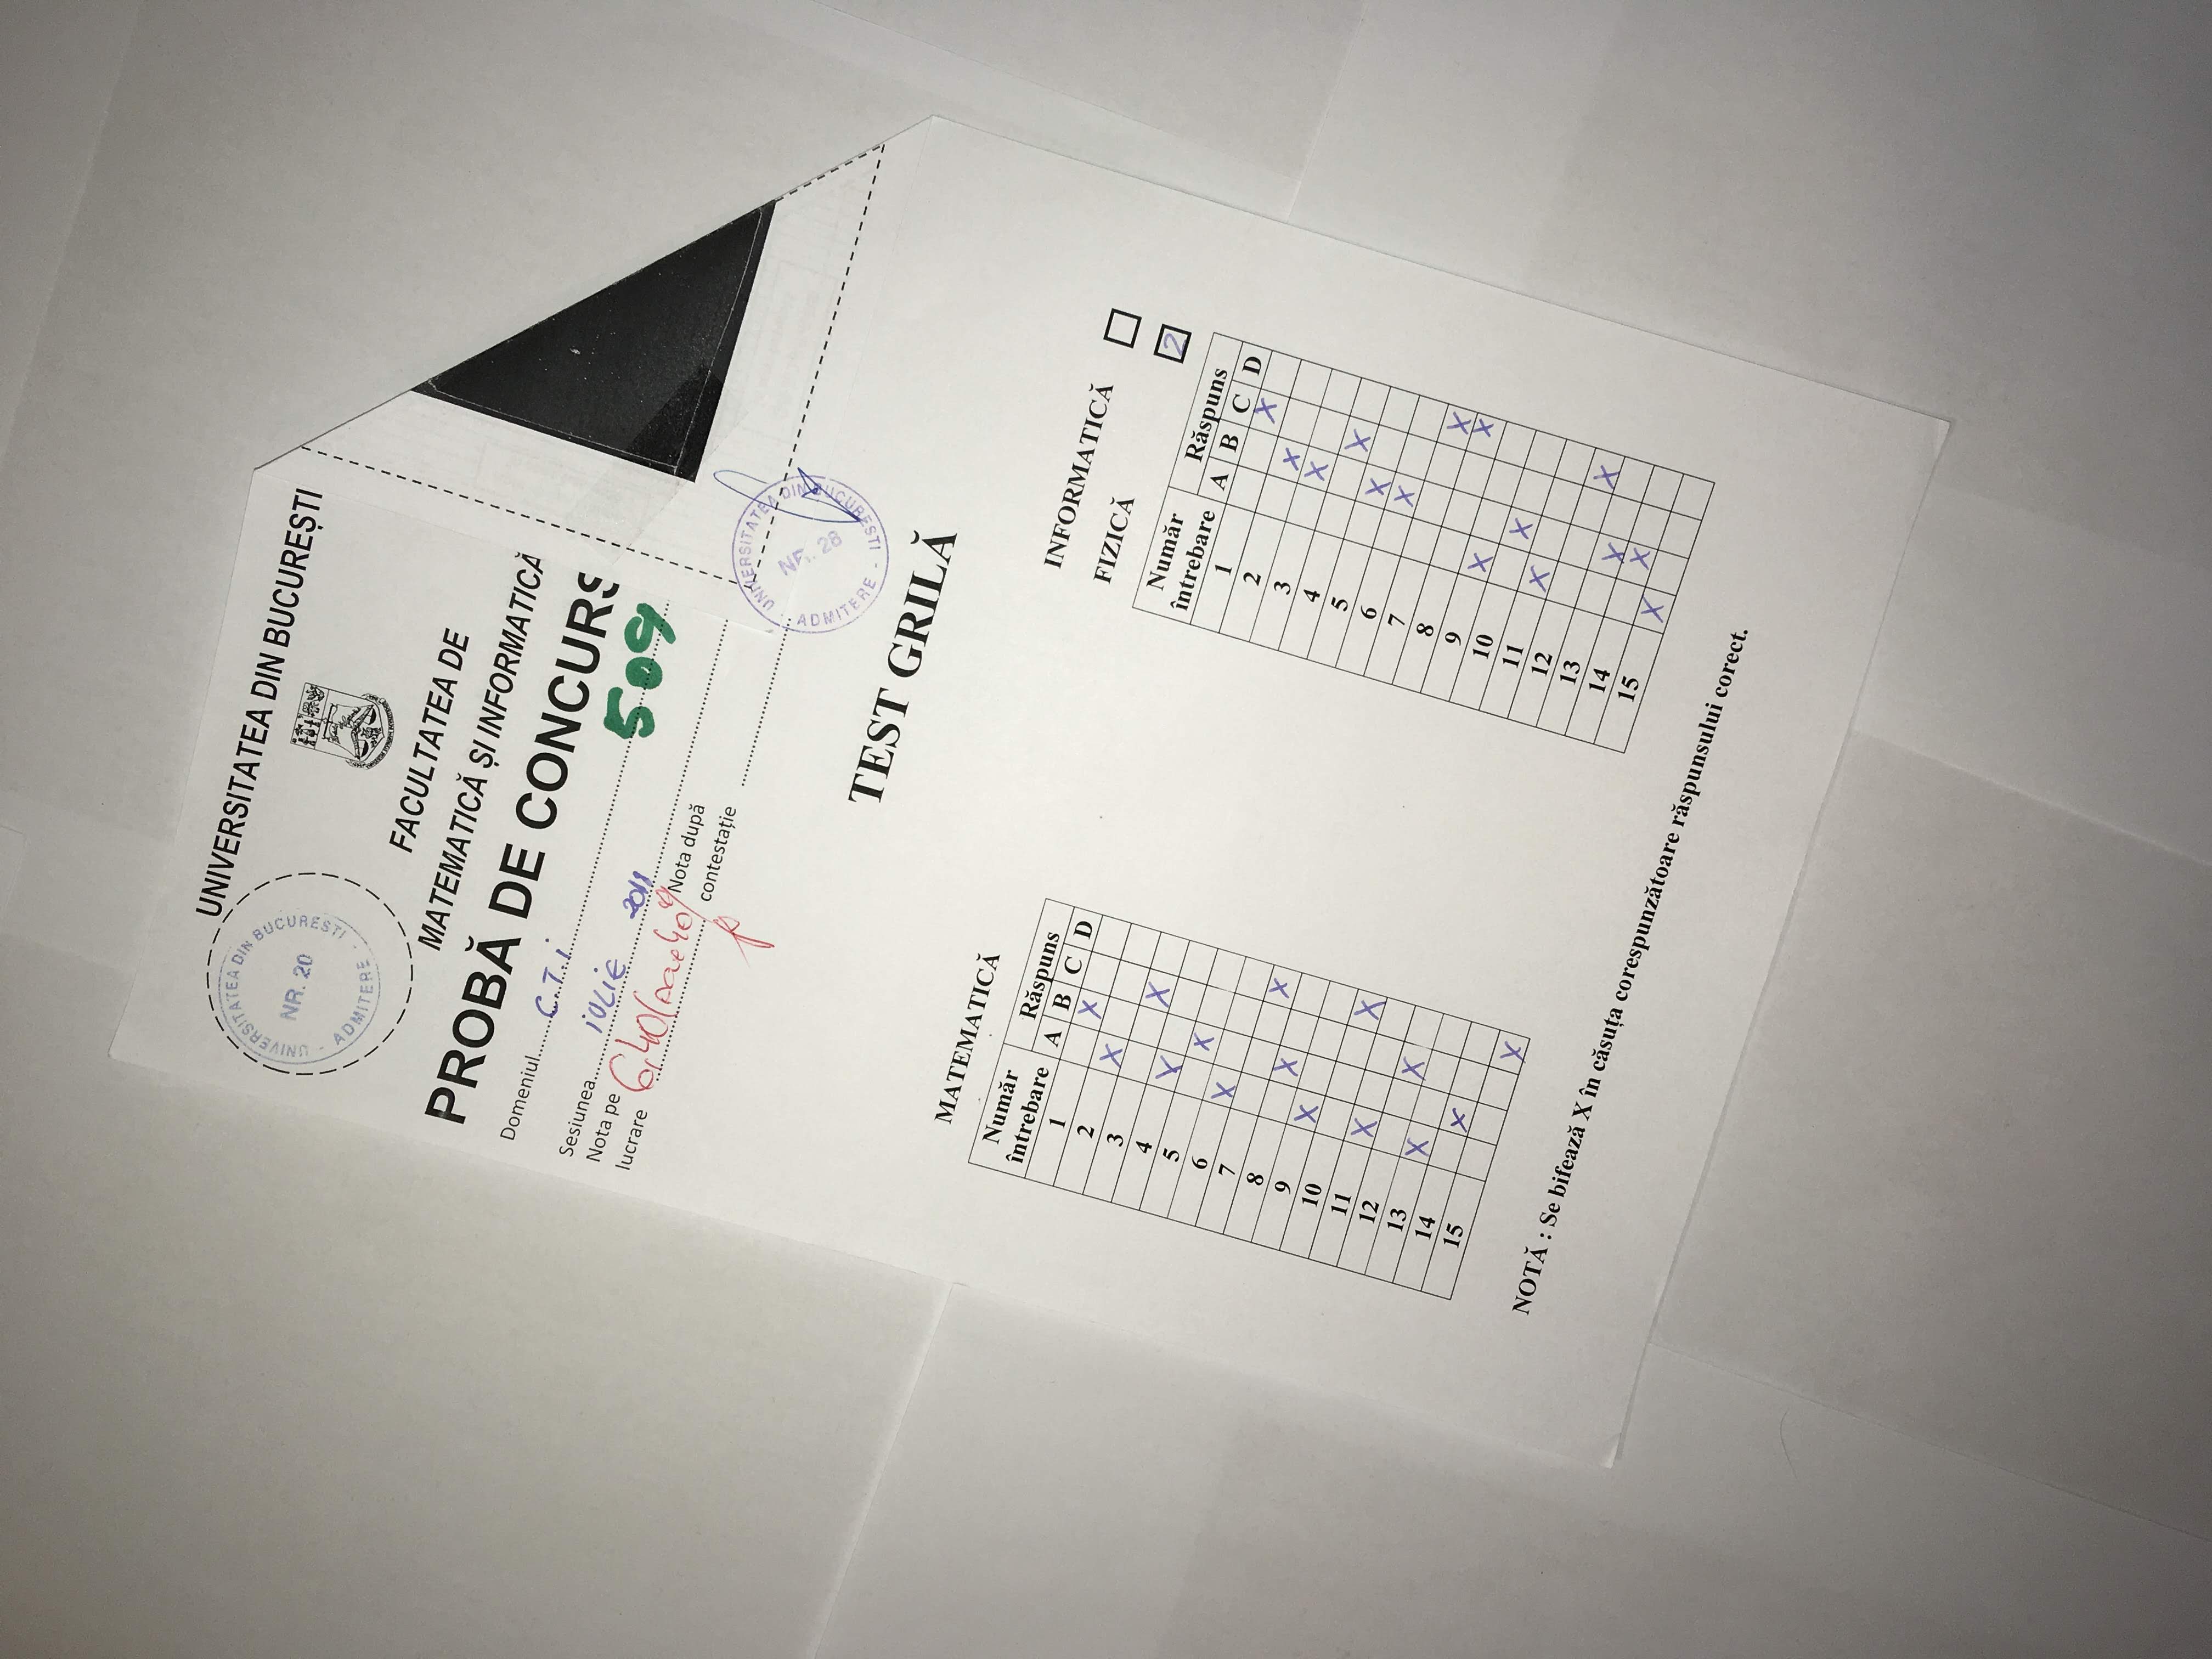 UNIVERSITATEA DIN BUCUREȘTI
UNIVERSITATEA DIN BUCURESTI - ADMITERE -
NR. 20
FACULTATEA DE
MATEMATICĂ ȘI INFORMATICĂ
PROBĂ DE CONCURS
Domeniul C.T.i
Sesiunea iULiE 2011
509
Nota pe lucrare 6,40
Nota după contestație
UNIVERSITATEA DIN BUCURESTI - ADMITERE
NR. 28
TEST GRILĂ
MATEMATICĂ
Număr întrebare Răspuns
A B C D
1 X
2 X
3 X
4 X
5 X
6 X
7 X
8 X
9 X
10 X
11 X
12 X
13 X
14 X
15 X
INFORMATICĂ
FIZICĂ 2
Număr întrebare Răspuns
A B C D
1 X
2 X
3 X
4 X
5 X
6 X
7 X
8 X
9 X
10 X
11 X
12 X
13 X
14 X
15 X
NOTĂ : Se bifează X în căsuța corespunzătoare răspunsului corect.